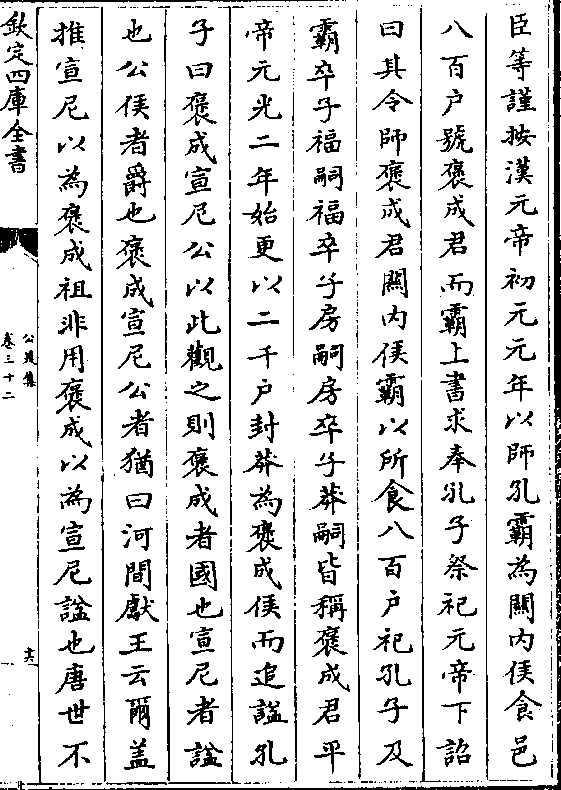 臣等謹按漢元帝初元元年以師孔霸為關内侯食邑
八百户號褒成君而霸上書求奉孔子祭祀元帝下詔
曰其令師褒成君關内侯霸以所食八百户祀孔子及
霸卒子福嗣福卒子房嗣房卒子莽嗣皆稱褒成君平
帝元光二年始更以二千户封莽為褒成侯而追諡孔
子曰褒成宣尼公以此觀之則褒成者國也宣尼者諡
也公侯者爵也褒成宣尼公者猶曰河間獻王云爾盖
推宣尼以為褒成祖非用褒成以為宣尼諡也唐世不
欽定四庫全書
公是集
卷三十二
十六